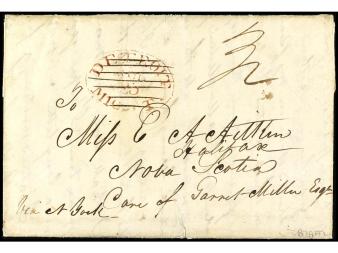 DETROIT
To
Miss E A Aitken
Halifax
Nova Scotia
Via N York Care of Garret Miller Esqr